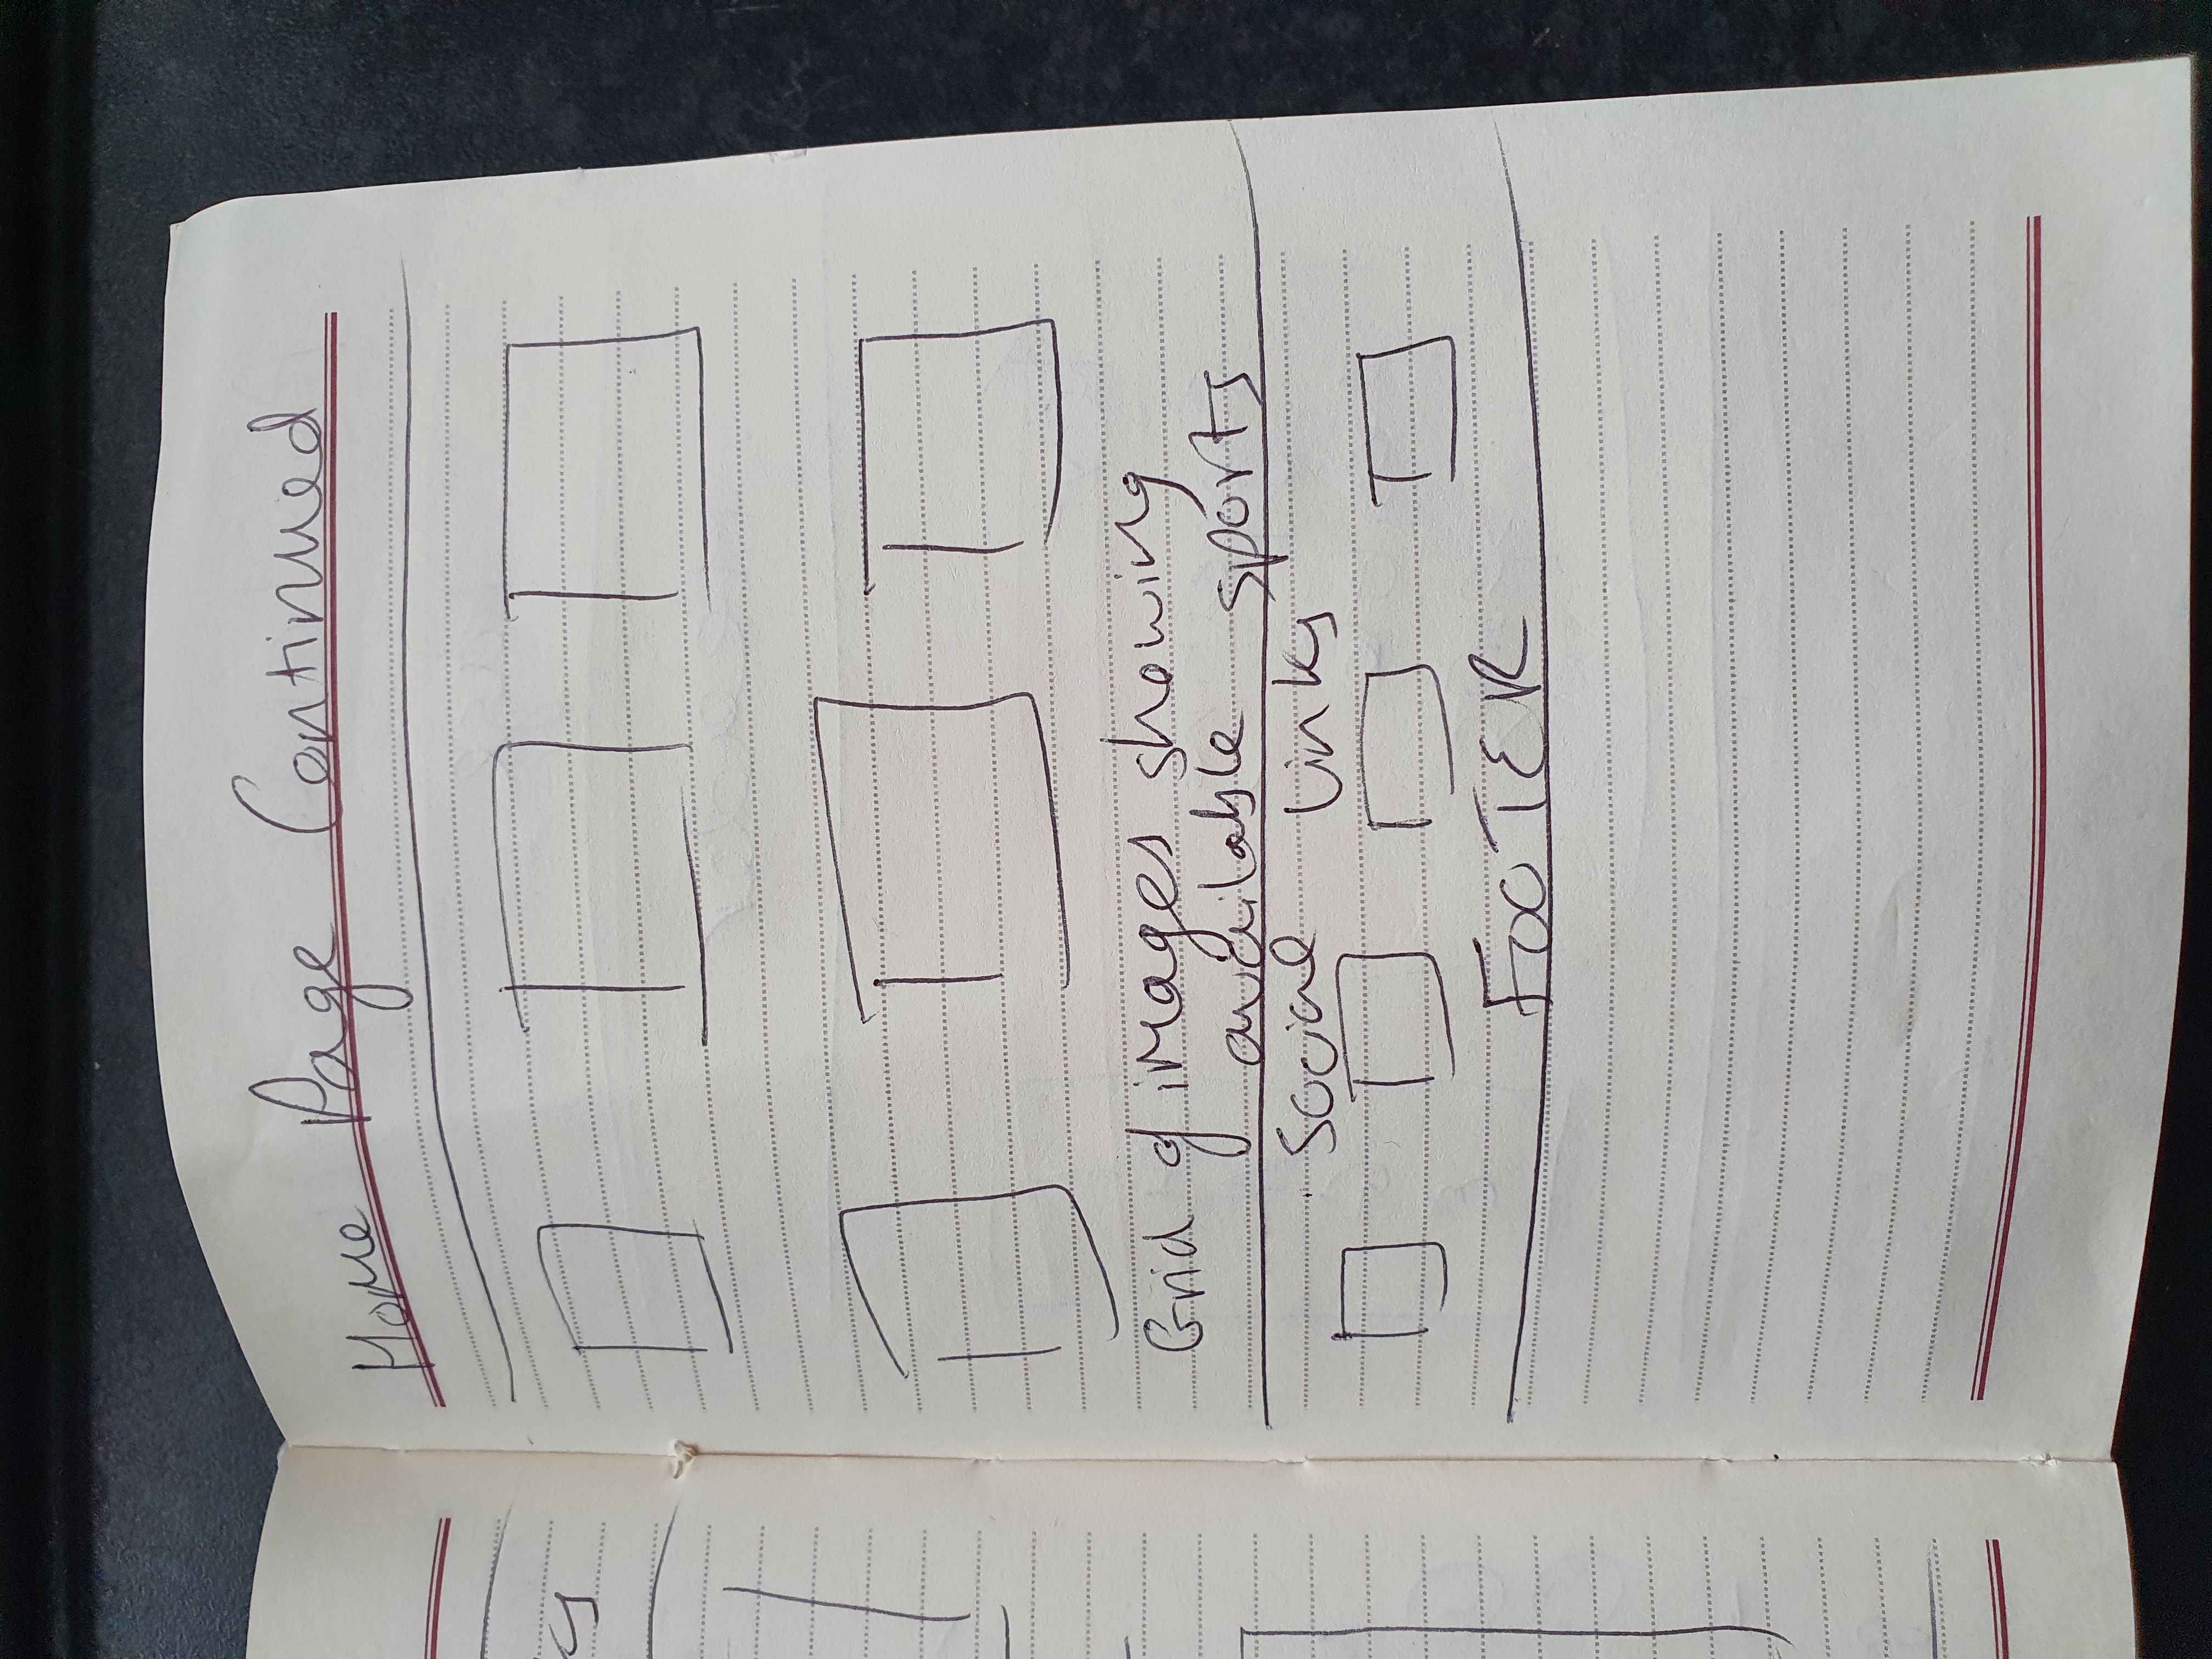 Home Page Continued
Grid of images showing
available sports
Social Links
FOOTER